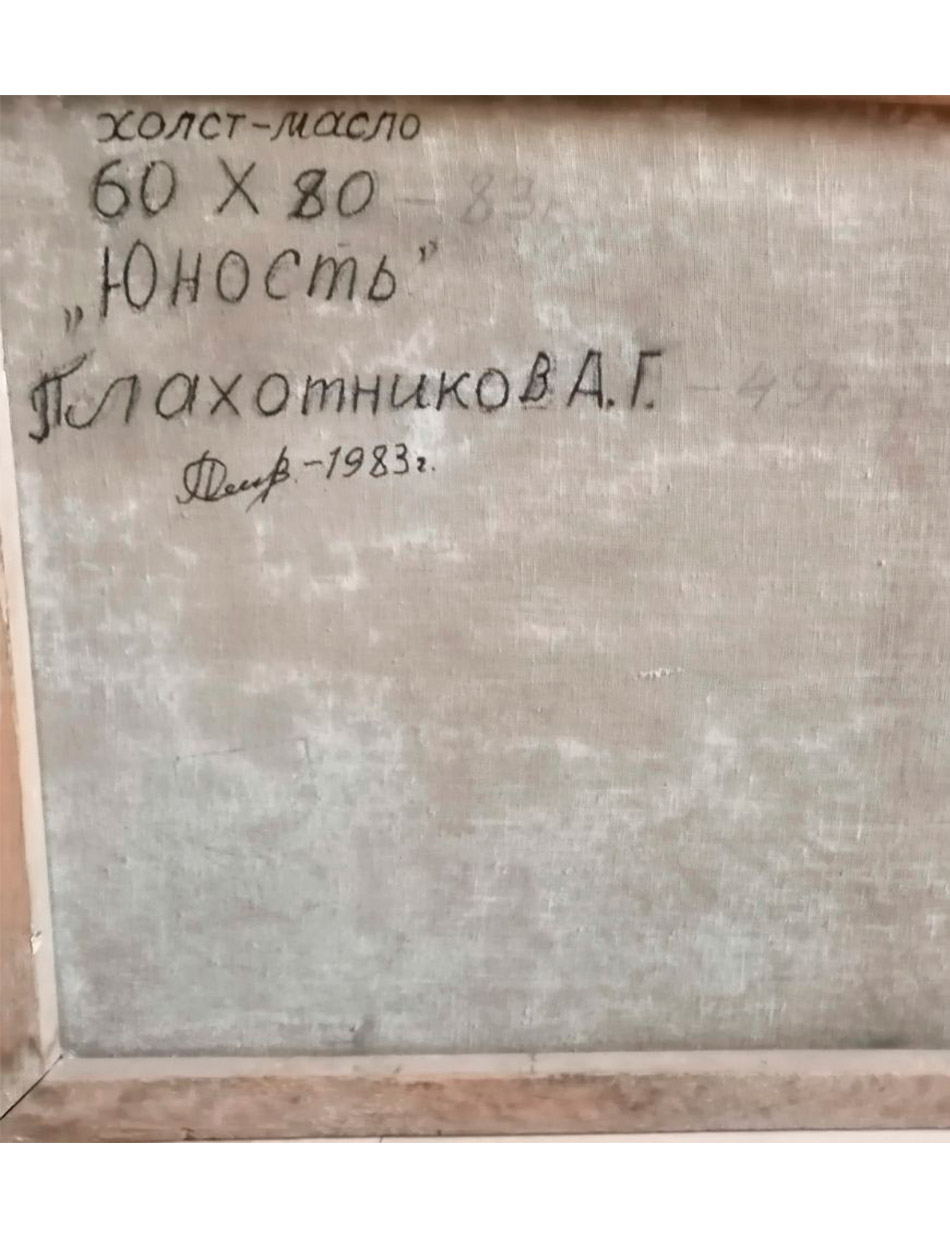 холст-масло
60 X 80 - 83г
„Юность”
Плахотников А.Г. - 49г
-1983г.